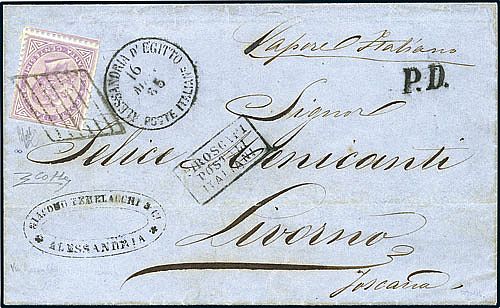 ALESSANDRIA D'EGITTO
POSTE ITALIANE
16
65
Vapore Italiano
P.D.
Signor
Felice
PIROSCAFI
POSTALI
ITALIANI
Livorno
Toscana
GIACOMO
& C.
ALESSANDRIA